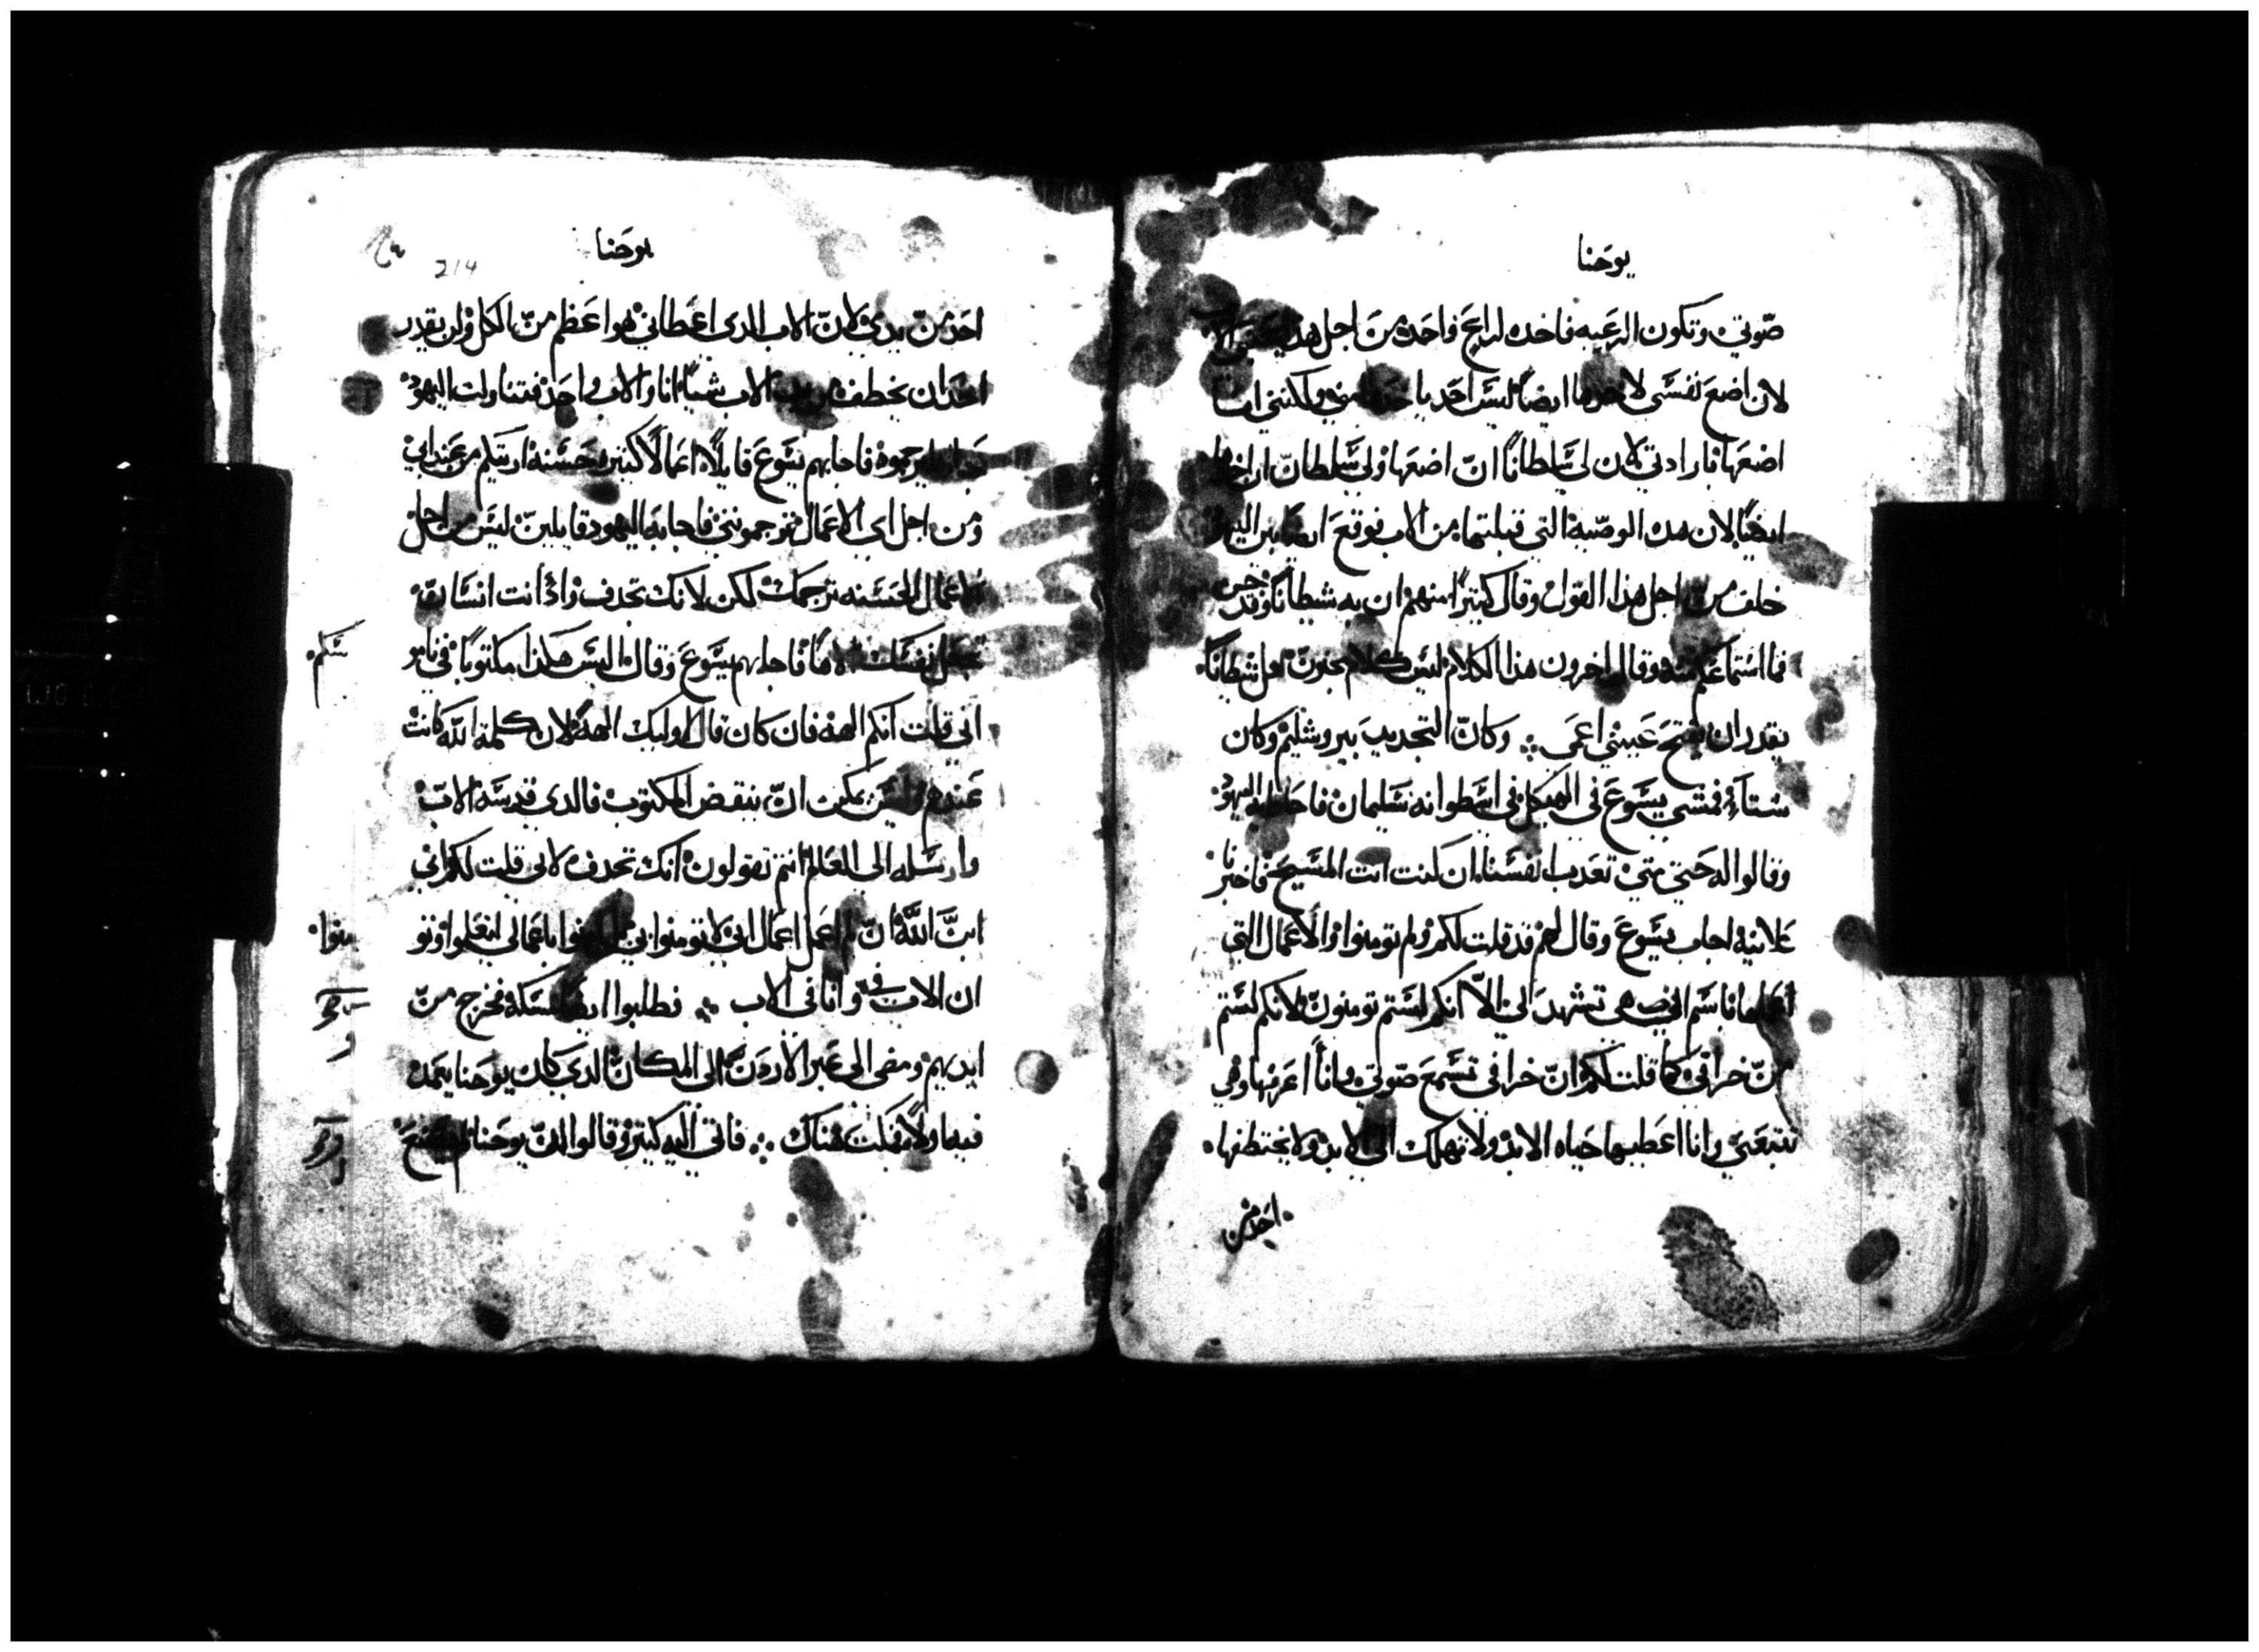 يوحنا
صوتي وتكون الرعيه واحده لراع واحد من اجل هدا يحبني الاب
لان اضع نفسي لاخدها ايضا ليس احد ياخدها مني ولكنني انا
اضعها بارادتي لان لي سلطانا ان اضعها ولي سلطان ان اخدها
ايضا لان هده الوصيه التي قبلتها من الاب فوقع ايضا بين اليهود
خلف من اجل هدا القول وقال كتيرا منهم ان به شيطانا وقد جن
فما استماعكم منه وقال اخرون هدا الكلام ليس كلام مجنون هل شيطانا
يقدر ان يفتح عيني اعمى وكان التجديد بيروشليم وكان
شتاء فمشي يسوع في الهيكل في اسطوانه سليمان فاحاط به اليهود
وقالوا له حتي متي تعدب انفسنا ان كنت انت المسيح فاخبرنا
علانيه اجاب يسوع وقال لهم قد قلت لكم ولم تومنوا والاعمال التي
اعملها باسم ابي هي تشهد لي الا انكم لستم تومنون لانكم لستم
من خرافي كما قلت لكم ان خرافي تسمع صوتي وانا اعرفها وهي
تتبعني وانا اعطيها حياه الابد ولا تهلك الي الابد ولا يختطفها
احد من
يوحنا
214
احد من يدي لان الاب الدي اعطاني هو اعظم من الكل ولن يقدر
احد ان يخطف من يد الاب شيا انا والاب واحد فتناولت اليهود
حجاره ليرجموه فاجابهم يسوع قايلا اعمالا كتيره حسنه اريتكم من عند ابي
ومن اجل اي الاعمال ترجمونني فاجابه اليهود قايلين ليس من اجل
الاعمال الحسنه نرجمك لكن لانك تجدف واد انت انسان
تجعل نفسك الاها فاجابهم يسوع وقال اليس هكدا مكتوبا في نامو
سكم
اني قلت انكم الهه فان كان قال اوليك الهه لان كلمة الله كانت
عندهم وليس يمكن ان ينقض المكتوب فالدي قدسه الاب
وارسله الى العالم انتم تقولون انك تجدف لاني قلت لكم اني
ابن الله ان لم اعمل اعمال ابي لا تومنوا بي باعمالي
منوا
ان الاب في وانا في الاب فطلبوا ايضا مسكه فخرج من
ايديهم ومضي الي عبر الاردن الى المكان الدي كان يوحنا يعمد
فيه اولا فمكت هناك فاتي اليه كتير وقالوا ان يوحنا لم يصنع